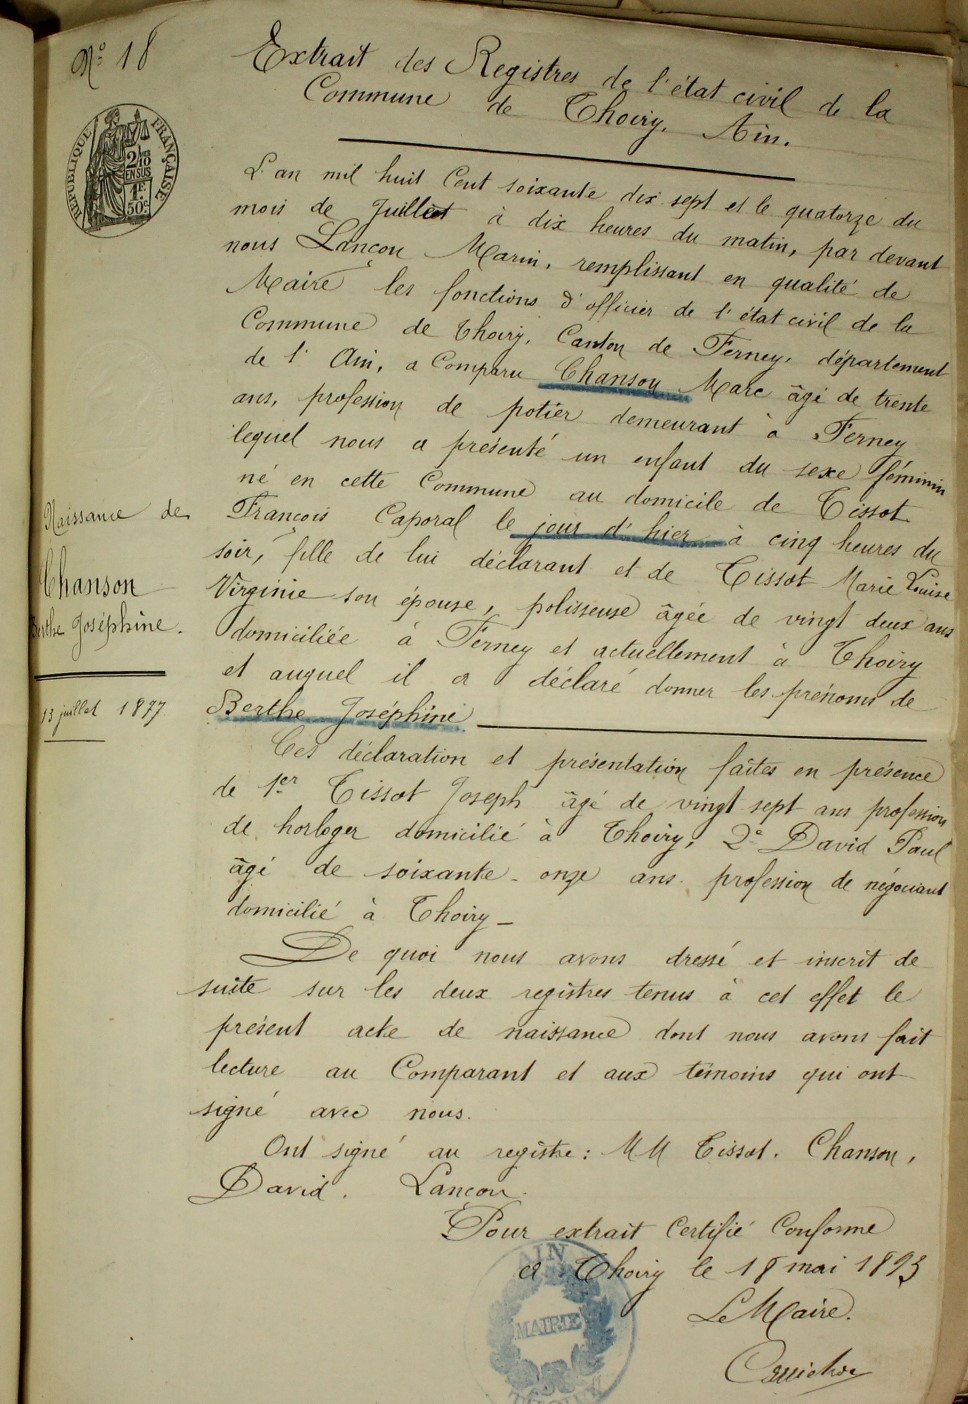 N° 18
Extrait des Registres de l'état civil de la
Commune de Thoiry. Ain.
RÉPUBLIQUE FRANÇAISE
2/10
EN SUS
1F.
50c
L'an mil huit Cent soixante dix sept et le quatorze du
mois de Juillet à dix heures du matin, par devant
nous Lançon Marin, remplissant en qualité de
Maire les fonctions d'officier de l'état civil de la
Commune de Thoiry, Canton de Ferney, département
de l'Ain, a Comparu Chanson Marc âgé de trente
ans, profession de potier demeurant à Ferney
lequel nous a présenté un enfant du sexe féminin
né en cette Commune au domicile de Tissot
François Caporal le jour d'hier à cinq heures du
soir, fille de lui déclarant et de Tissot Marie Louise
Virginie son épouse, polisseuse âgée de vingt deux ans
domiciliée à Ferney et actuellement à Thoiry
et auquel il a déclaré donner les prénoms de
Berthe Joséphine
Naissance de
Chanson
Berthe Joséphine.
13 juillet 1877
Ces déclaration et présentation faites en présence
de 1er Tissot Joseph âgé de vingt sept ans profession
de horloger domicilié à Thoiry, 2e David Paul
âgé de soixante-onze ans profession de négociant
domicilié à Thoiry _
De quoi nous avons dressé et inscrit de
suite sur les deux registres tenus à cet effet le
présent acte de naissance dont nous avons fait
lecture au Comparant et aux témoins qui ont
signé avec nous.
Ont signé au registre: MM Tissot. Chanson,
David. Lançon.
Pour extrait Certifié Conforme
à Thoiry le 18 mai 1893
Le Maire.
AIN
MAIRIE
THOIRY